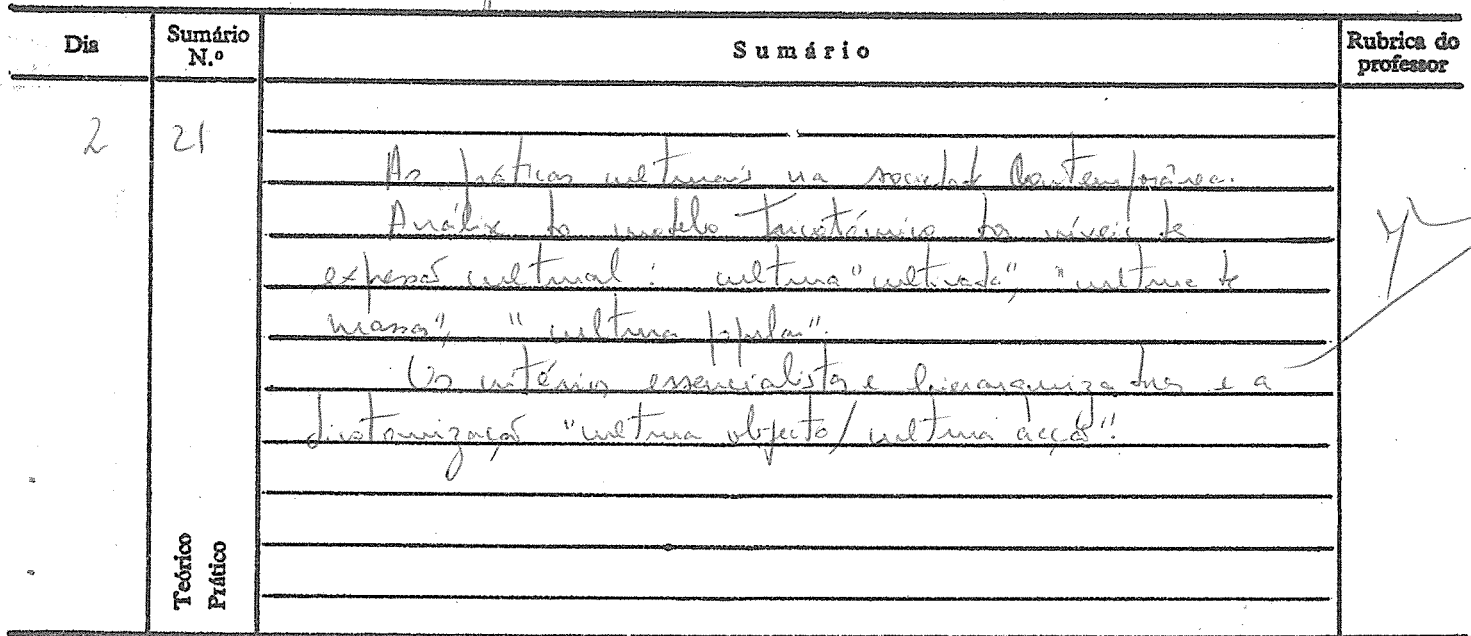 Dia Sumário N.º Sumário Rubrica do professor
2 21
As práticas culturais na sociedade Contemporânea.
Análise do modelo tricotómico dos níveis de
expressão cultural : cultura "cultivada", "cultura de
massas", "cultura popular".
Os critérios essencialistas e hierarquizadores e a
dicotomização "cultura objecto/cultura acção".
Teórico
Prático